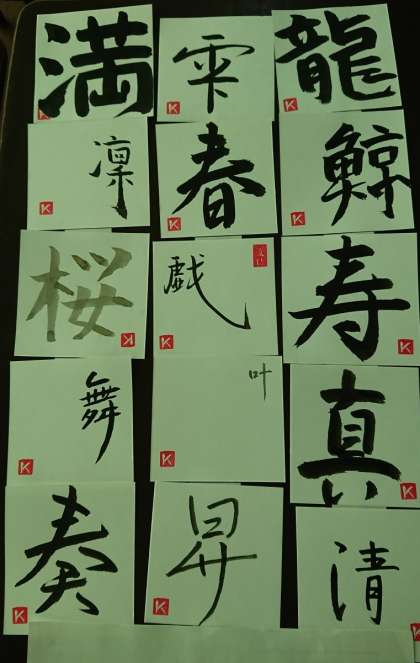 満 雫 龍
凛 春 鯨
桜 戯 寿
舞 叶 真
奏 昇 清